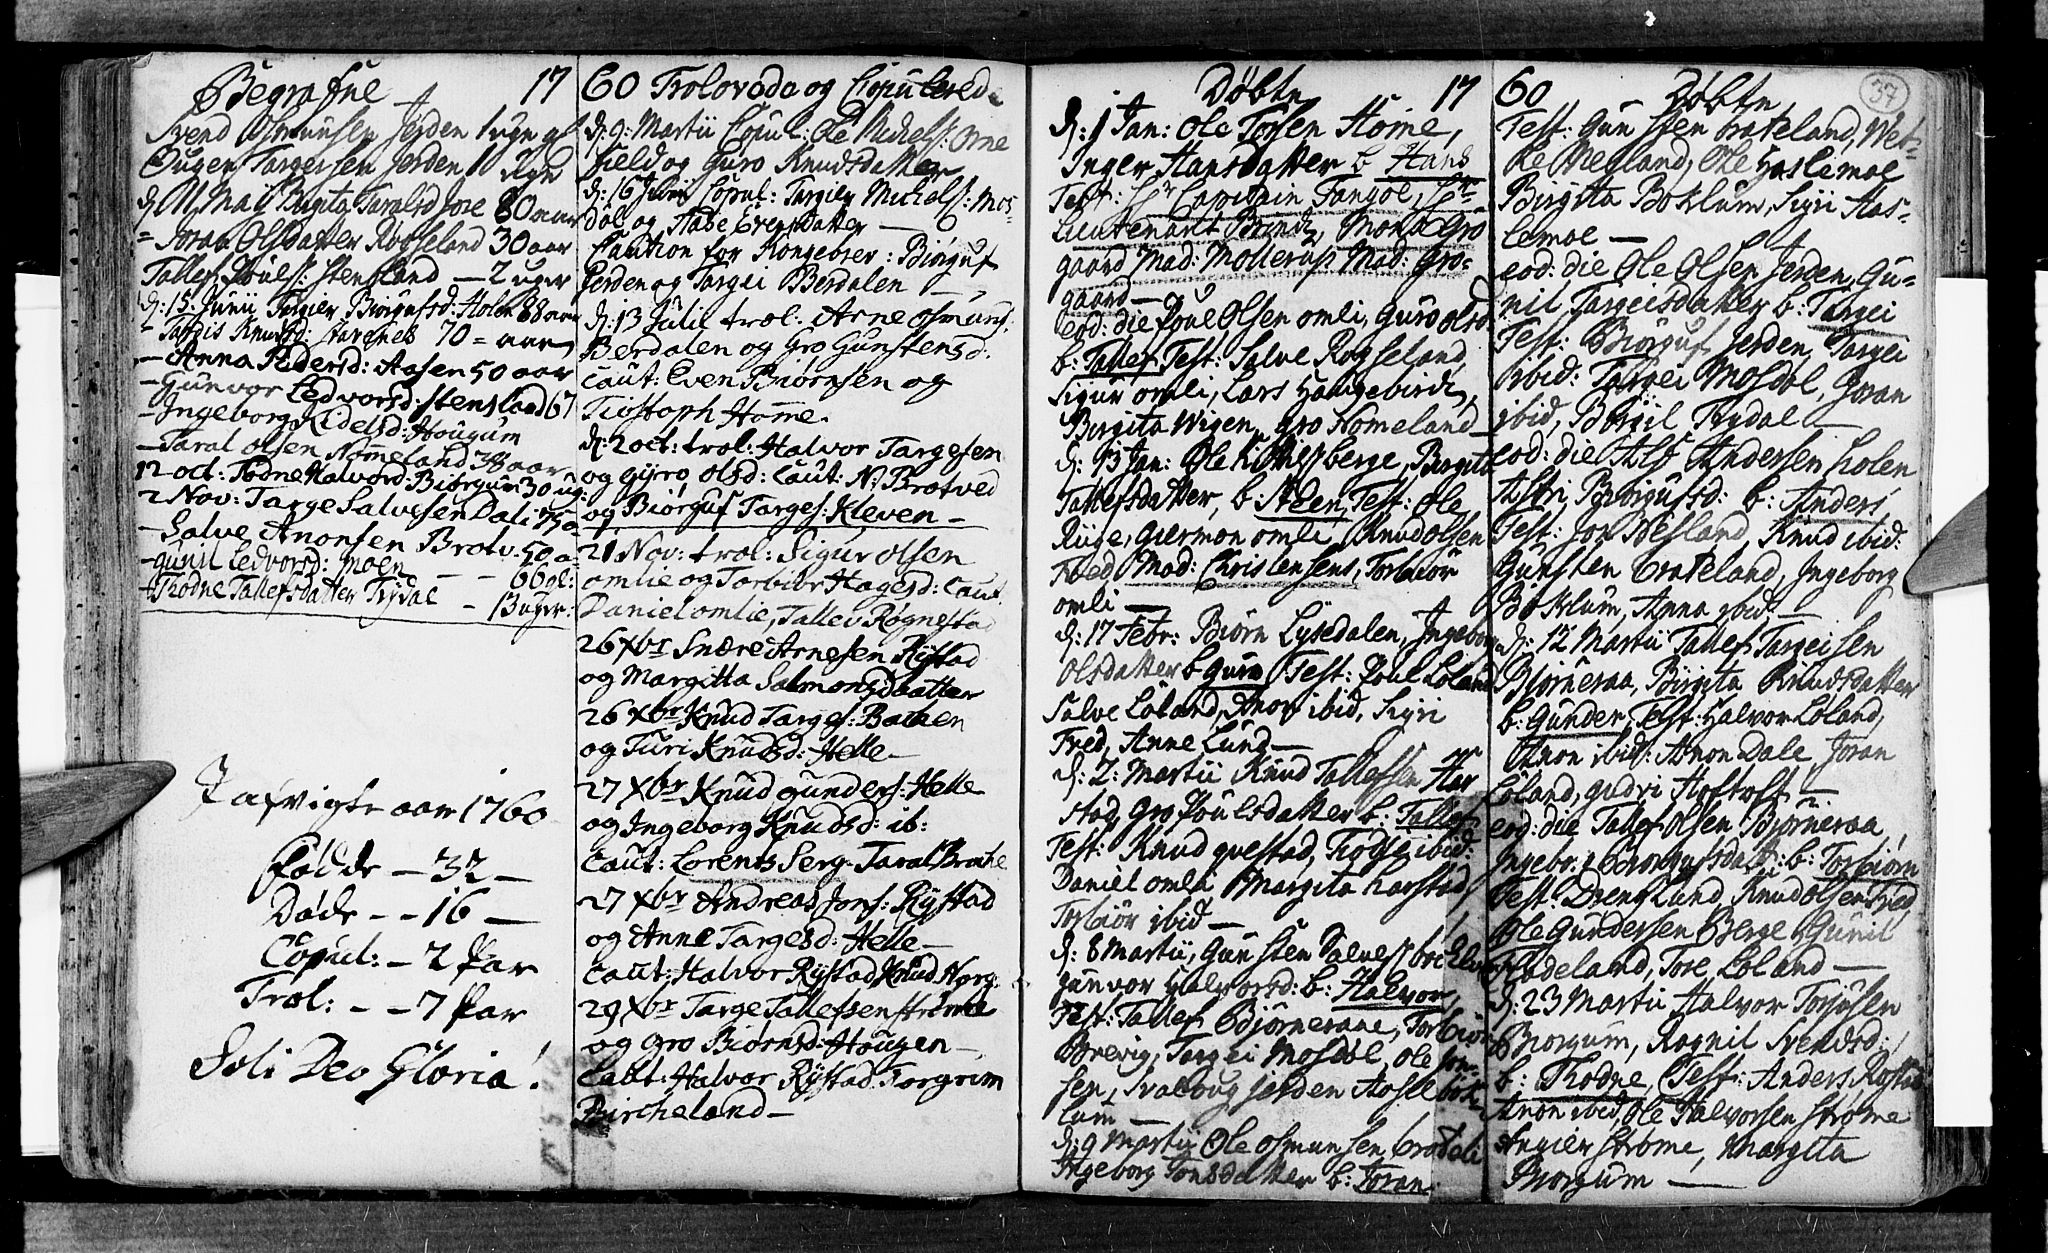 Begrafne 17
Svend Osmunsen Jerden 1 uge gl
Ougen Targersen Jerden 1 Uge
d. 11 Maii Birgita Taralsd Jore 80 aar
= Joran Olsdatter Rosseland 30 aar
Tallef Pouels: Stensland — 2 uger
d: 15 Junii Targier Biorgufsd: Holen 88 aar
- Targdis Knudsd: Harsnes 70 = aar
— Anna Pedersd: Aasen 50 aar
- Gunvor Ledvorsd: Stensland 67
- Ingeborg Kidelsd: Hougum
— Taral Olsen Nomeland 38 aar
12 oct: Todne Halvord Biorgum 30 ug:
2 Nov: Targe Salvesen Dali 75 a=
— Salve Anonsen Brotv. 50 a=
- gunil Ledvorsd: Moen — - 66 gl:
- Thodne Tallefsdatter Trydal - 13 uger:
I afvigte aar 1760
Fødde — 32 —
Døde - - 16 —
Copul: — 2 Par
Trol: - - 7 Par
Soli Deo Gloria!
60 Trolovede og Copulerede
d: 9: Martii Copul: Ole Michels: Orne
field og Guro Knudsdatter
d: 16 Junii Copul: Targier Michels: Mos-
dol og Aase Evensdatter —
Caution for Kongeoser: Biorguf
Jerden og Targei Berdalen —
d: 13 Julii trol: Arne Osmuns:
Berdalen og Gro Gunstensd:
caut: Even Biørnsen og
Tiostoph Homme.
d: 2 oct: trol: Halvor Targesen
og gyro olsd: caut: N: Brotved
og Biørguf Targes: Kleven —
21 Nov: trol: Sigur olsen
omlie og Torbiør Hagesd: caut:
Daniel omlie, Tallev Røgnestad
26 Xbr Snære Arnesen Rystad
og Margitta Salmonsdaatter
26 Xbr Knud Targes: Bachen
og Turi Knudsd: Helle —
27 Xbr Knud gunders: Helle
og Ingeborg Knudsd: ib:
caut: Lorents Serg. Taral Broche
27 Xbr Andreas Jons: Rystad
og Anne Targesd: Helle —
caut: Halvor Rystad, Knud Norg.
29 Xbr Targe Tallefsen Strøme
og gro Biørnsd: Hougen —
Caut: Halvor Rystad. Torgrim
Bircheland —
Døbte 17
d: 1 Jan: Ole Torsen Home,
Inger Hansdatter b Hans
Test: Hr Capitain Fangol, Hr
Lieutenant Brandt, Mons Gro
gaard Mad: Mollerup Mad: Gro=
gaard —
eod: die Poul Olsen omli, Guro olsd:
b: Tallef Test: Salve Rosseland,
Sigur omli, Lars Haugebirch,
Birgita Wigen, Gro Homeland —
d: 13 Jan: Ole Berge, Birgita
Tallefsdatter, b: Steen, Test: Ole
Riige, Giermon omli, Knud Olsen
Froed, Mad: Christensens, Torbiør
omli —
d: 17 Febr: Biørn Lysedalen, Ingeborg
Olsdatter b guro Test: Poul Loland
Salve Loland, Anon ibid, Siyri
Fred, Anne Lund —
d: 2: Martii Knud Tallefsen Har
stad, gro Poulsdatter b: Tallef
Test: Knud qvestad, ibid:
Daniel omli Margita Harstad,
Torbiør ibid —
d: 8 Martii, Gunsten Salves:
gunvor Halvorsd: b: Halvor
Test: Tallef Bjorneraae, Torbiør
Brevig, Targei Mosdøl, Ole Jon-
sen, Svaloug Jerden Aose Bok-
lum —
d: 9 Martii Ole Osmunsen Brodeli
Ingeborg Tonsdatter b: Joran
60 Døbte 37
Test: Gunsten Brateland, Wet-
le Megland, Ole Haslemoe
Birgita Boklum, Siyri Has-
lemoe —
eod: die Ole Olsen Jerden, Gu-
nil Targeisdatter b: Targei
Test: Biørguf Jerden, Targei
ibid: Targei Mosdøl, Joran
ibid, Borgil Trydal —
eod: die Alf Andersen Holen
Astri Biorgufsd: b: Anders,
Test: Jon Besland, Knud ibid:
Gunsten Brateland, Ingeborg
Boklum, Anna ibid: —
d: 12 Martii Tallef Targeisen
Bjørneraa, Birgita Knudsdatter
b: Gunder, Test: Halvor Loland,
Anon ibid: Anon Dale, Joran
Loland, gudri Hoftoft —
eod: die Tallef olsen Bjørneraa,
Ingebor: Biorgufsdatt: b: Torbiørn
Test: Dreng Lund, Knud olsen Fred
Ole Gundersen Berge, Gunil
Flodeland, Tore Loland —
d: 23 Martii Halvor Torjusen
Biorgum, Rognil Svendsd:
b: Thodne Test: Anders Rystad
Anon ibid, Ole Halvorsen Strøme
Angier Strome, Margita
Biorgum —